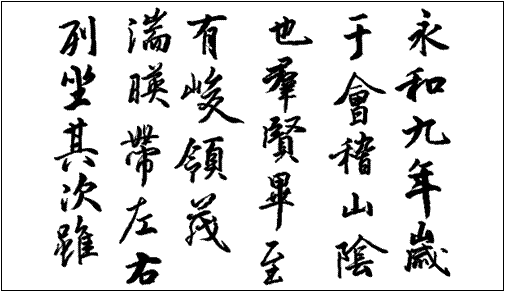 永和九年歲
于會稽山陰
也羣賢畢至
有峻領茂
湍暎帶左右
列坐其次雖